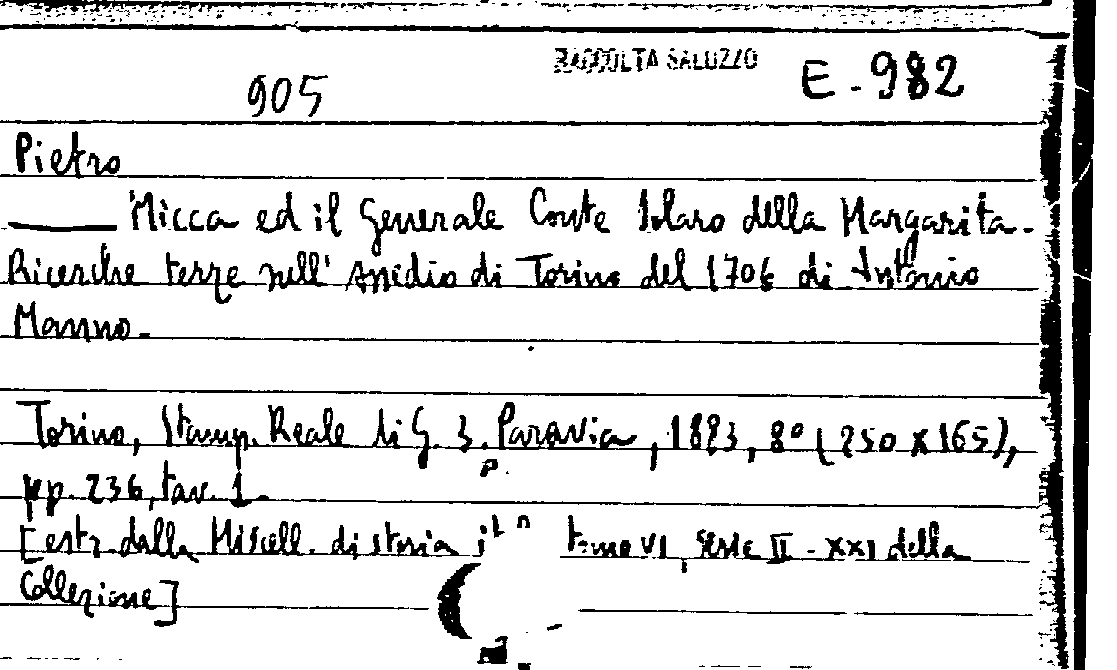 RACCOLTA SALUZZO
905 E-982
Pietro
Micca ed il Generale Conte Solaro della Margarita.
Ricerche terze nell'assedio di Torino del 1706 di Antonio
Manno.
Torino, Stamp. Reale di G. B. Paravia, 1883, 8° (250 x 165),
pp. 236, tav. 1.
[estr. dalla Miscell. di storia tomo VI, serie II - XXI della
Collezione]